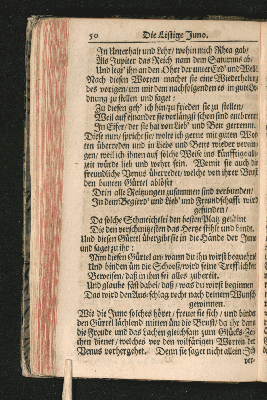 50 Die Listige Juno.
In Unterhalt und Lehr/ wohin mich Rhea gab/
Als Jupiter das Reich nam dem Saturnus ab/
Und legt' ihn an den Ohrt der unter Erd' und Welt.
Nach diesen Worten machet sie eine Wiederholung
des vorigen/ um mit dem nachfolgenden es in gute Ord-
nung zu stellen und saget:
Zu diesen geh' ich hin/zu frieden sie zu stellen/
Weil auf einander sie vorlängst schon sind entbrennt
Im Eifer/ der sie hat von Lieb' und Bett getrennt.
Dafe nun/ spricht sie/ wolte ich gerne mit guten Wor-
ten überreden und in Liebe und Bette wieder verei-
gen/ weil ich ihnen auf solche Weise ins künftige al-
zeit würde lieb und wehrt sein. Venus sie auch die
freundliche Venus überredet/ welche von ihrer Brust
den bunten Gürtel ablöset
Drin alle Reitzungen zusammen sind verbunden/
In dem Begierd' und Lieb' und Freundschafft wird
gefunden/
Da solche Schmeichelei den besten Platz gewinnt
Die den verschmitzten das Hertze stihlt und bindt.
Und diesen Gürtel übergibt sie in die Hände der Juno
und saget zu ihr:
Nim diesen Gürtel an/ wann du ihn wirst begürten
Und binden üm die Schooß/ wird seine Trefflichkeit
Beweisen/ daß in ihm sei alles zubereit.
Und glaube fast dabei/ daß/ was du wirst beginnen
Das wird den Ausschlag recht nach deinem Wunsch
gewinnen.
Wie die Juno solches höret/ freuet sie sich/ und bindet
den Gürtel lächlend mitten üm die Brust/ da ihr dann
die Freude und das Lachen gleichsam zum Glücks-Zei-
chen dienet/ welches vor den wilfärigen Worten der
Venus vorhergehet. Denn sie saget nicht allein: Ich
ver-